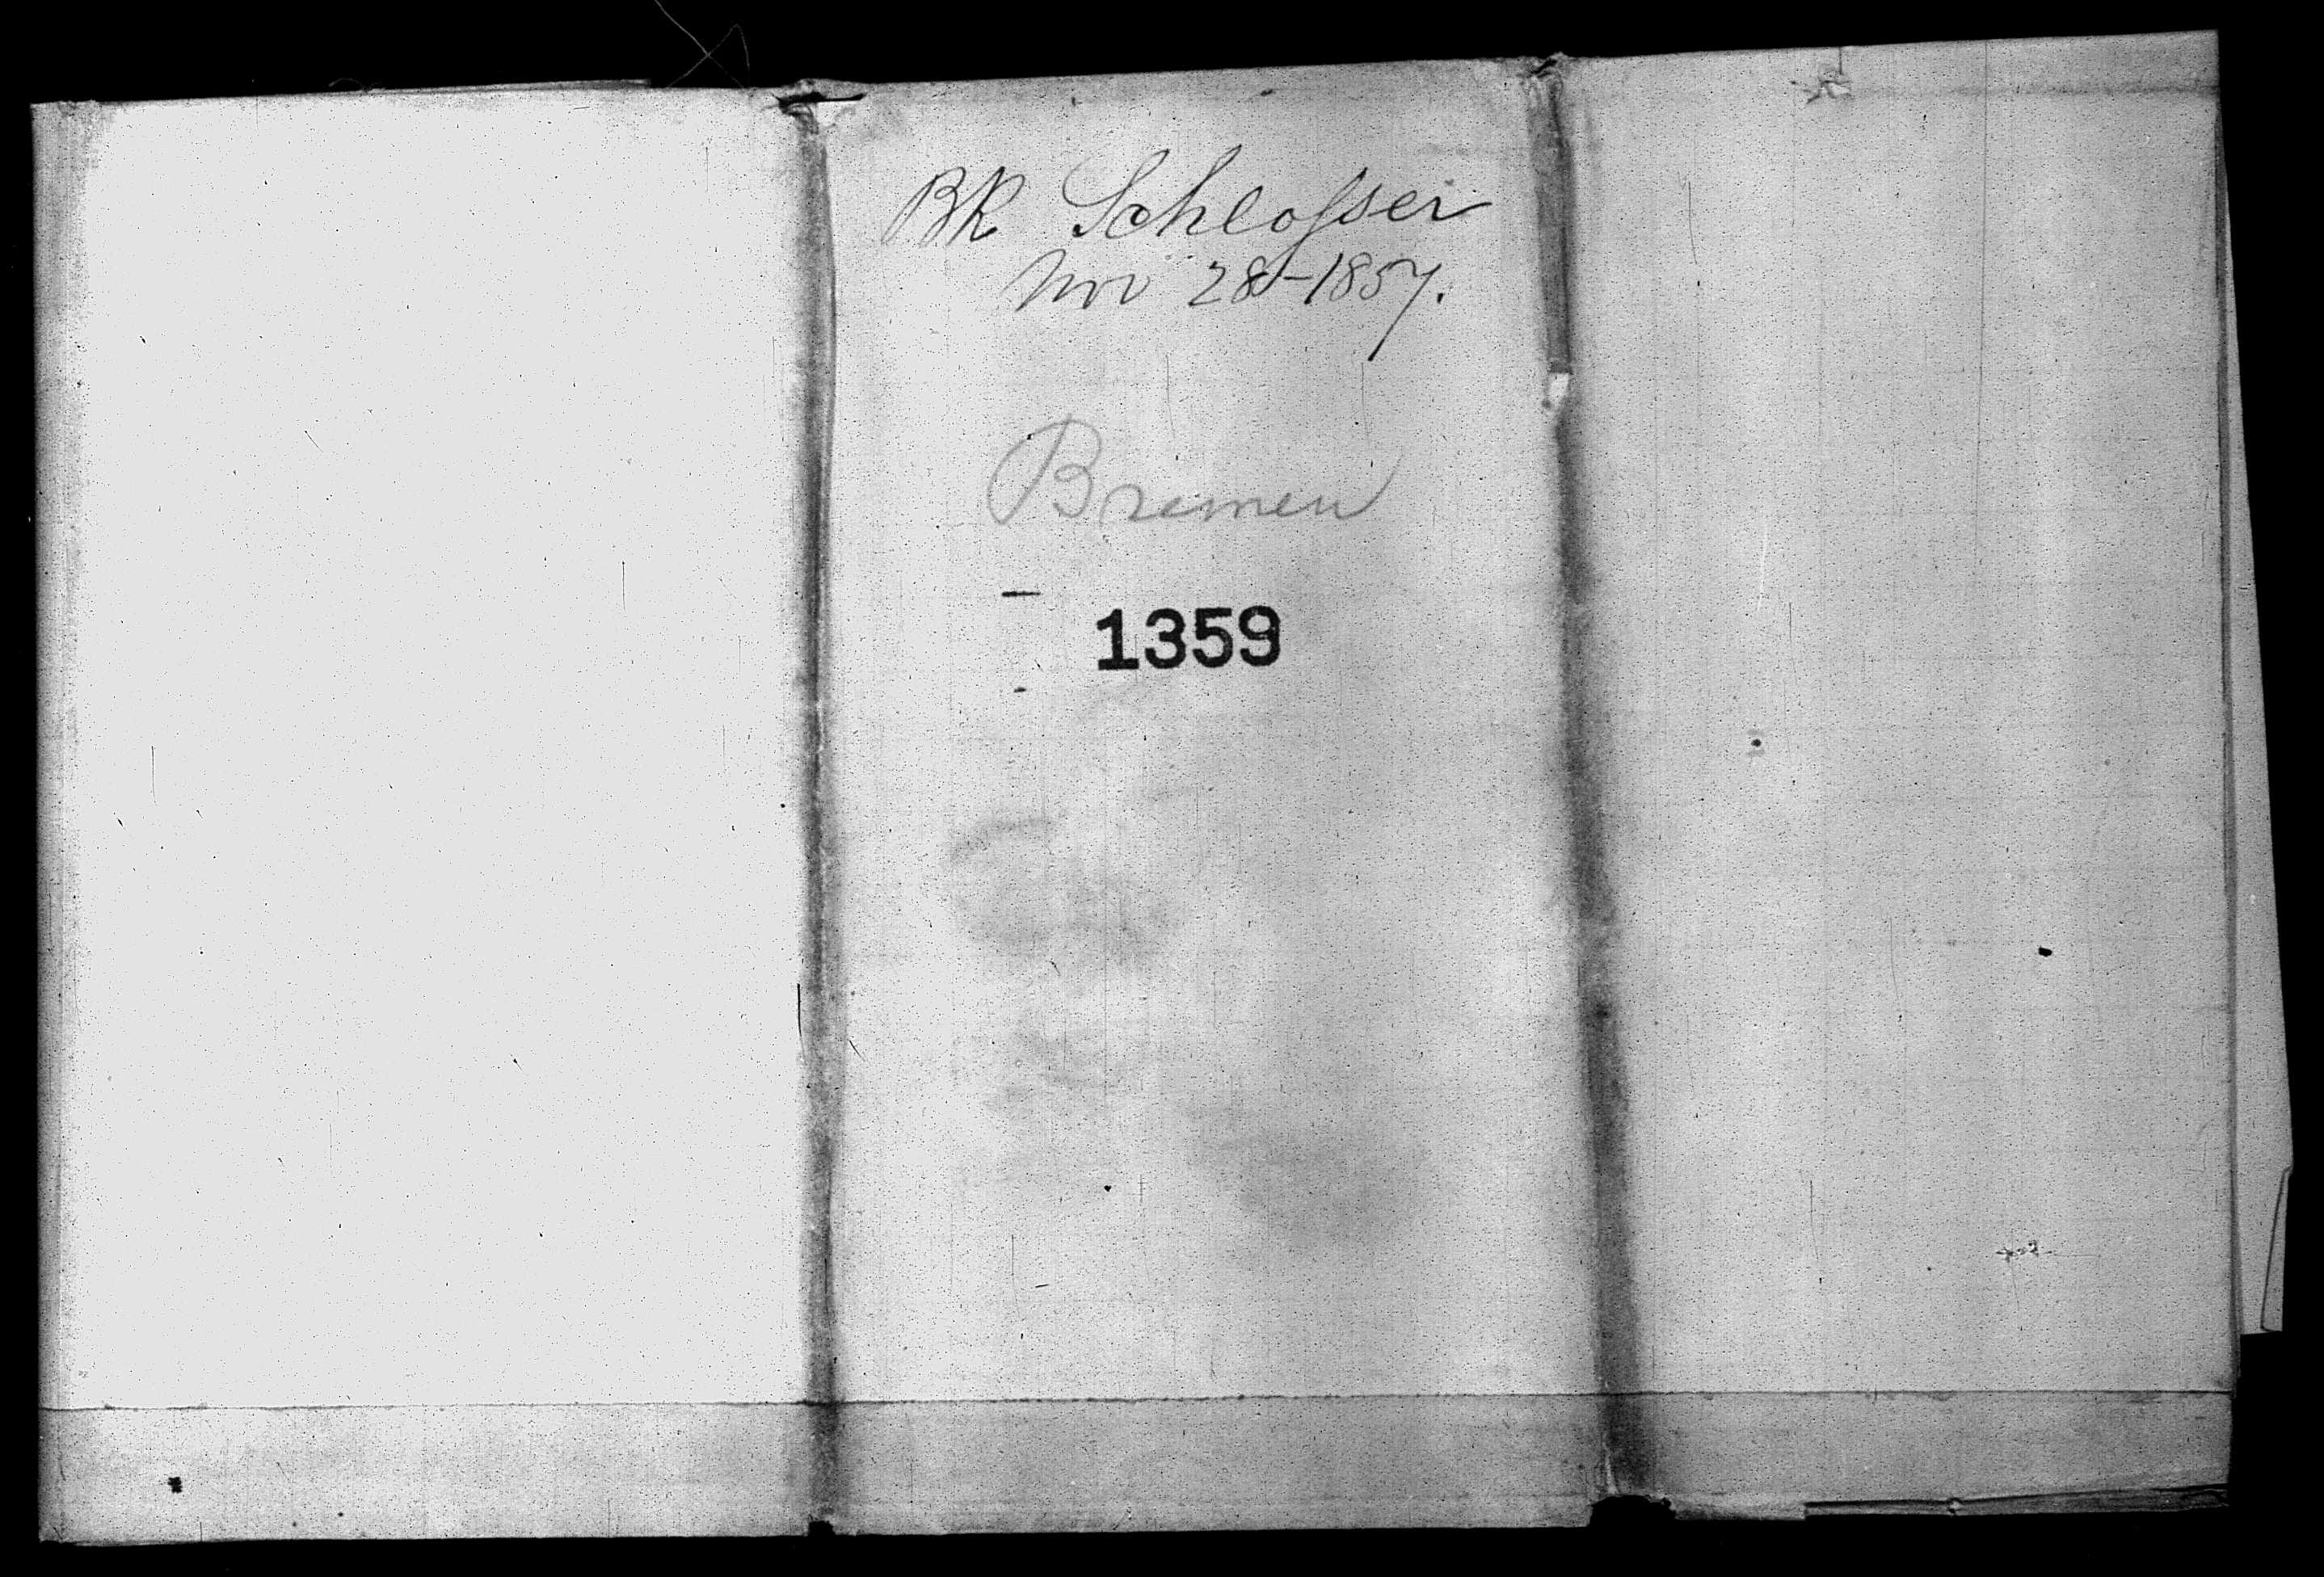 BK Schlosser
Nov 28-1857.
Bremen
1359